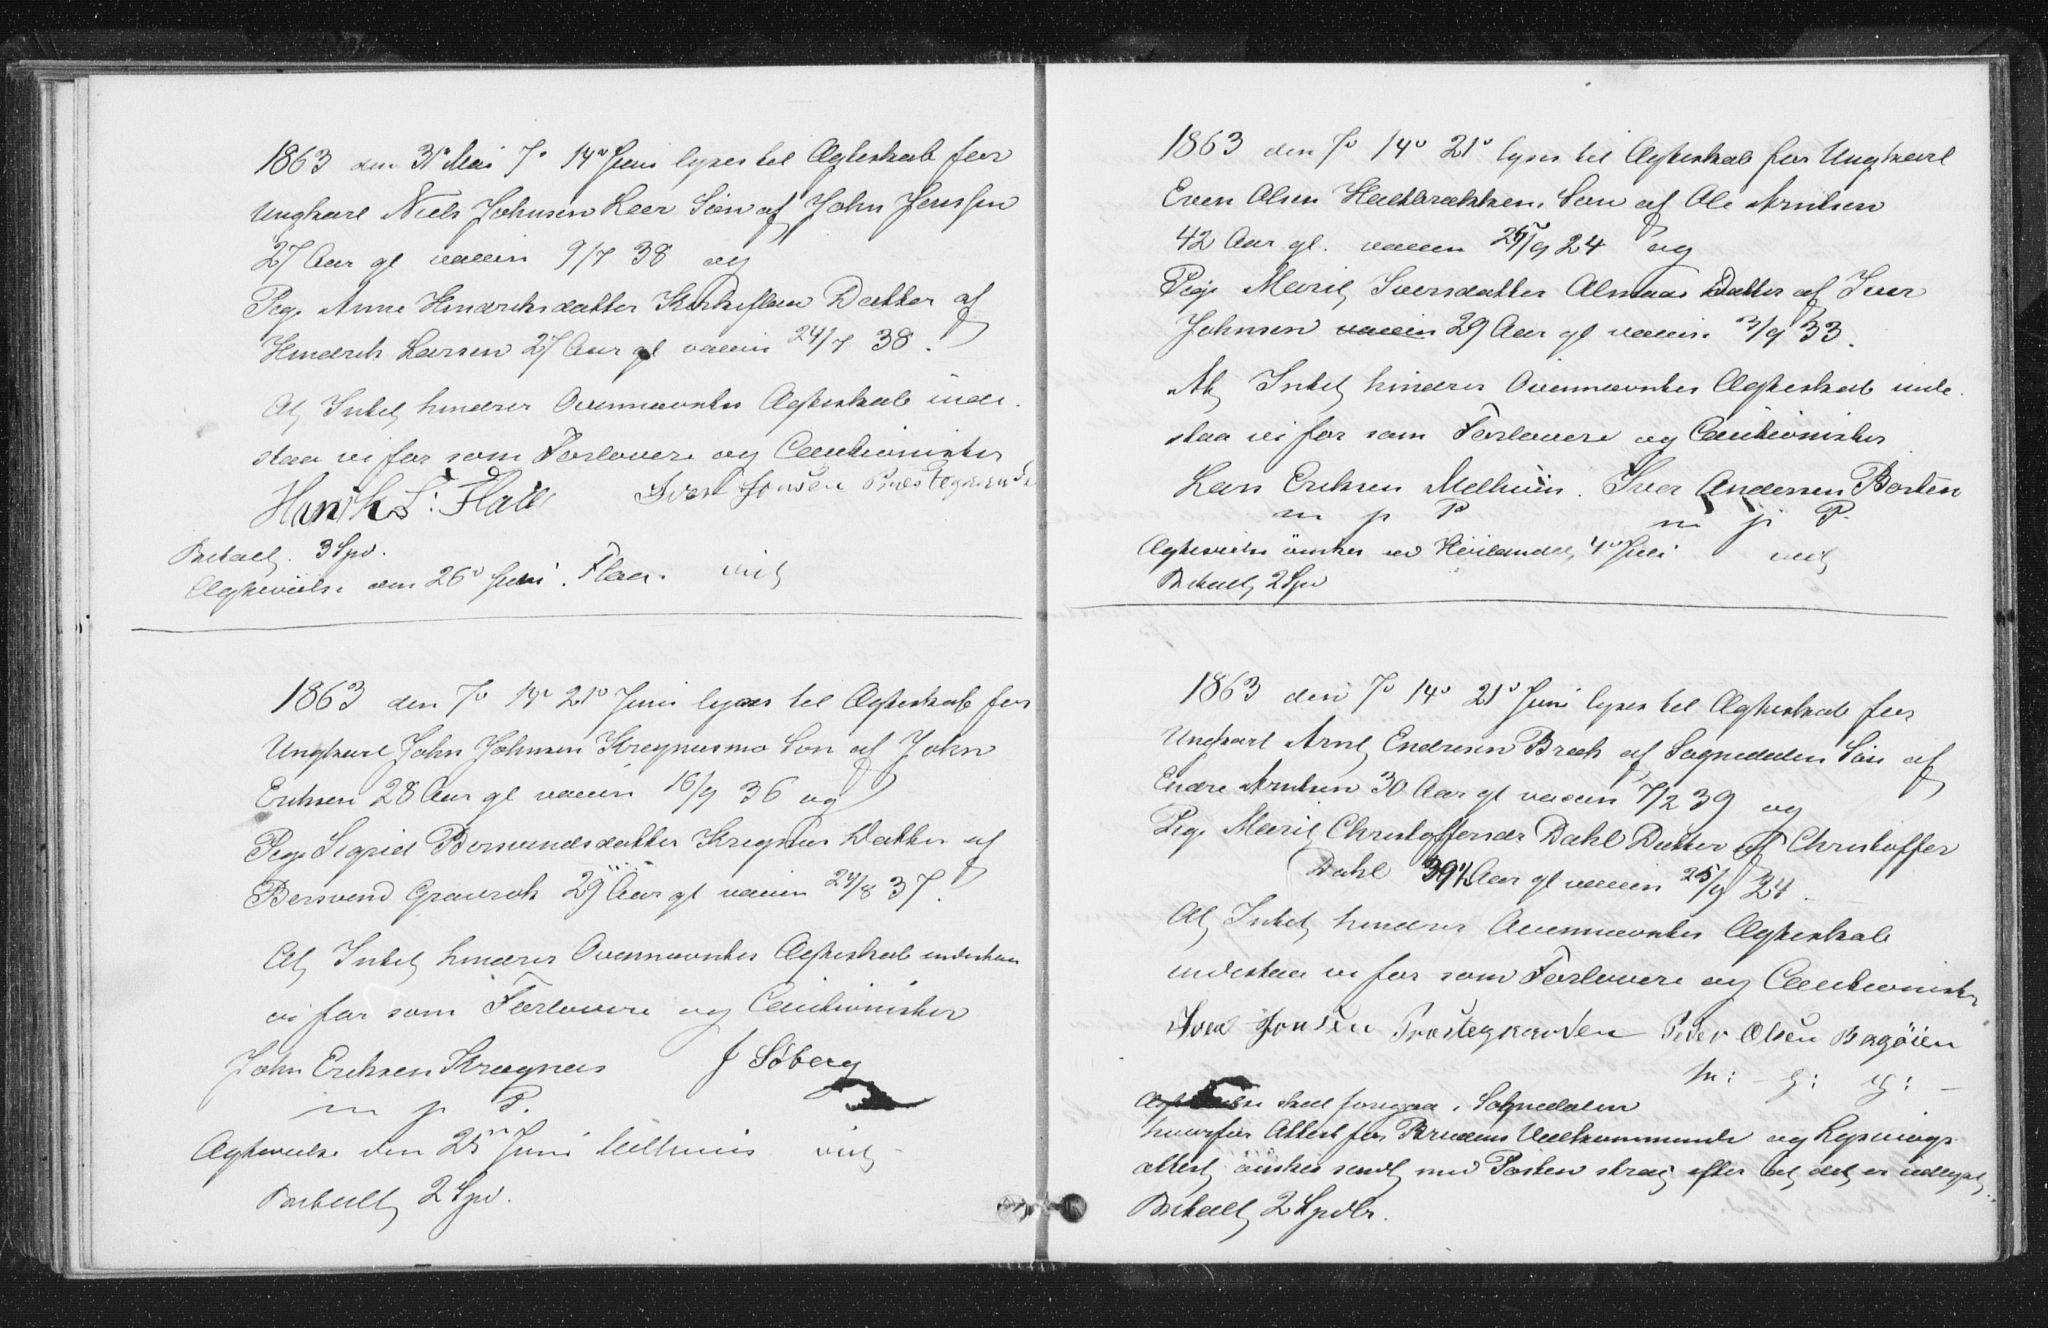 1863 den 31te Mai 7de 14de Juni lyses til Ægteskab for
Ungkarl Niels Johnsen Leer Søn af John Jenssen
27 Aar gl vaccin 9/7 38 og
Pige Anne Hendriksdatter Kirkeflaa Datter af
Hendrik Larsen 27 Aar gl vaccin 24/7 38.
At Intet hindrer Ovennævntes Ægteskab inde
staa vi for som Forlovere og Cautionister
Henrik L: Flaa Iver Jonsen Præstegaarden
Betalt 3 Spd.
Ægtevielse den 26de Juni. Flaa. viet
1863 den 7de 14de 21de Juni lyses til Ægteskab for
Ungkarl John Johnsen Kregnesmo Søn af John
Eriksen 28 Aar gl vaccin 16/9 36 og
Pige Sigrid Bersvendsdatter Kregnes Datter af
Bersvend Gravrok 29 Aar gl vaccin 24/8 37.
At Intet hindrer Ovennævntes Ægteskab indestaa
vi for som Forlovere og Cautionister
John Eriksen Kregnes J Søberg
m p P.
Ægtevielse den 25de Juni Melhuus viet
Betalt 2 Spd.
1863 den 7de 14de 21de lyses til Ægteskab for Ungkarl
Even Olsen Søn af Ole Arntsen
42 Aar gl. vaccin 25/9 24 og
Pige Marit Iversdatter Alsmaas Datter af Iver
Johnsen vaccin 29 Aar gl vaccin 3/9 33.
At Intet hindrer Ovennævntes Ægteskab inde
staa vi for som Forlovere og Cautionister
Lars Eriksen Melhuus. Iver Andersen Borten
m p P m p P.
Ægtevielse ønskes ved Höilandet 4de Juli viet
Betalt 2 Spd
1863 den 7de 14de 21de Juni lyses til Ægteskab for
Ungkarl Arnt Endresen Bræk af Sognedalen Søn af
Endre Arntsen 30 Aar gl vaccin 7/2 39 og
Pige Marit Christoffersdr Dahl Datter af Christoffer
Dahl Aar gl vaccin 25/9 24.
At Intet hindrer Ovennævntes Ægteskab
indestaa vi for som Forlovere og Cautionister
Iver Jonsen Præstegaarden Peder Olsen Bagøien
Ægtevielse skal foregaa i Sognedalen
hvorfor Attest for Brudens Vedkommende og Lysnings
attest ønskes sendt med Posten strax efter at det er udlyst.
Betalt 2 Spdlr.